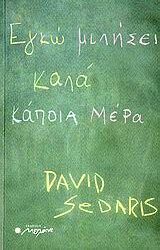 Εγκώ μιλήσει
καλά
κάποια μέρα
DAVID
SeDARIS
Μελάνι